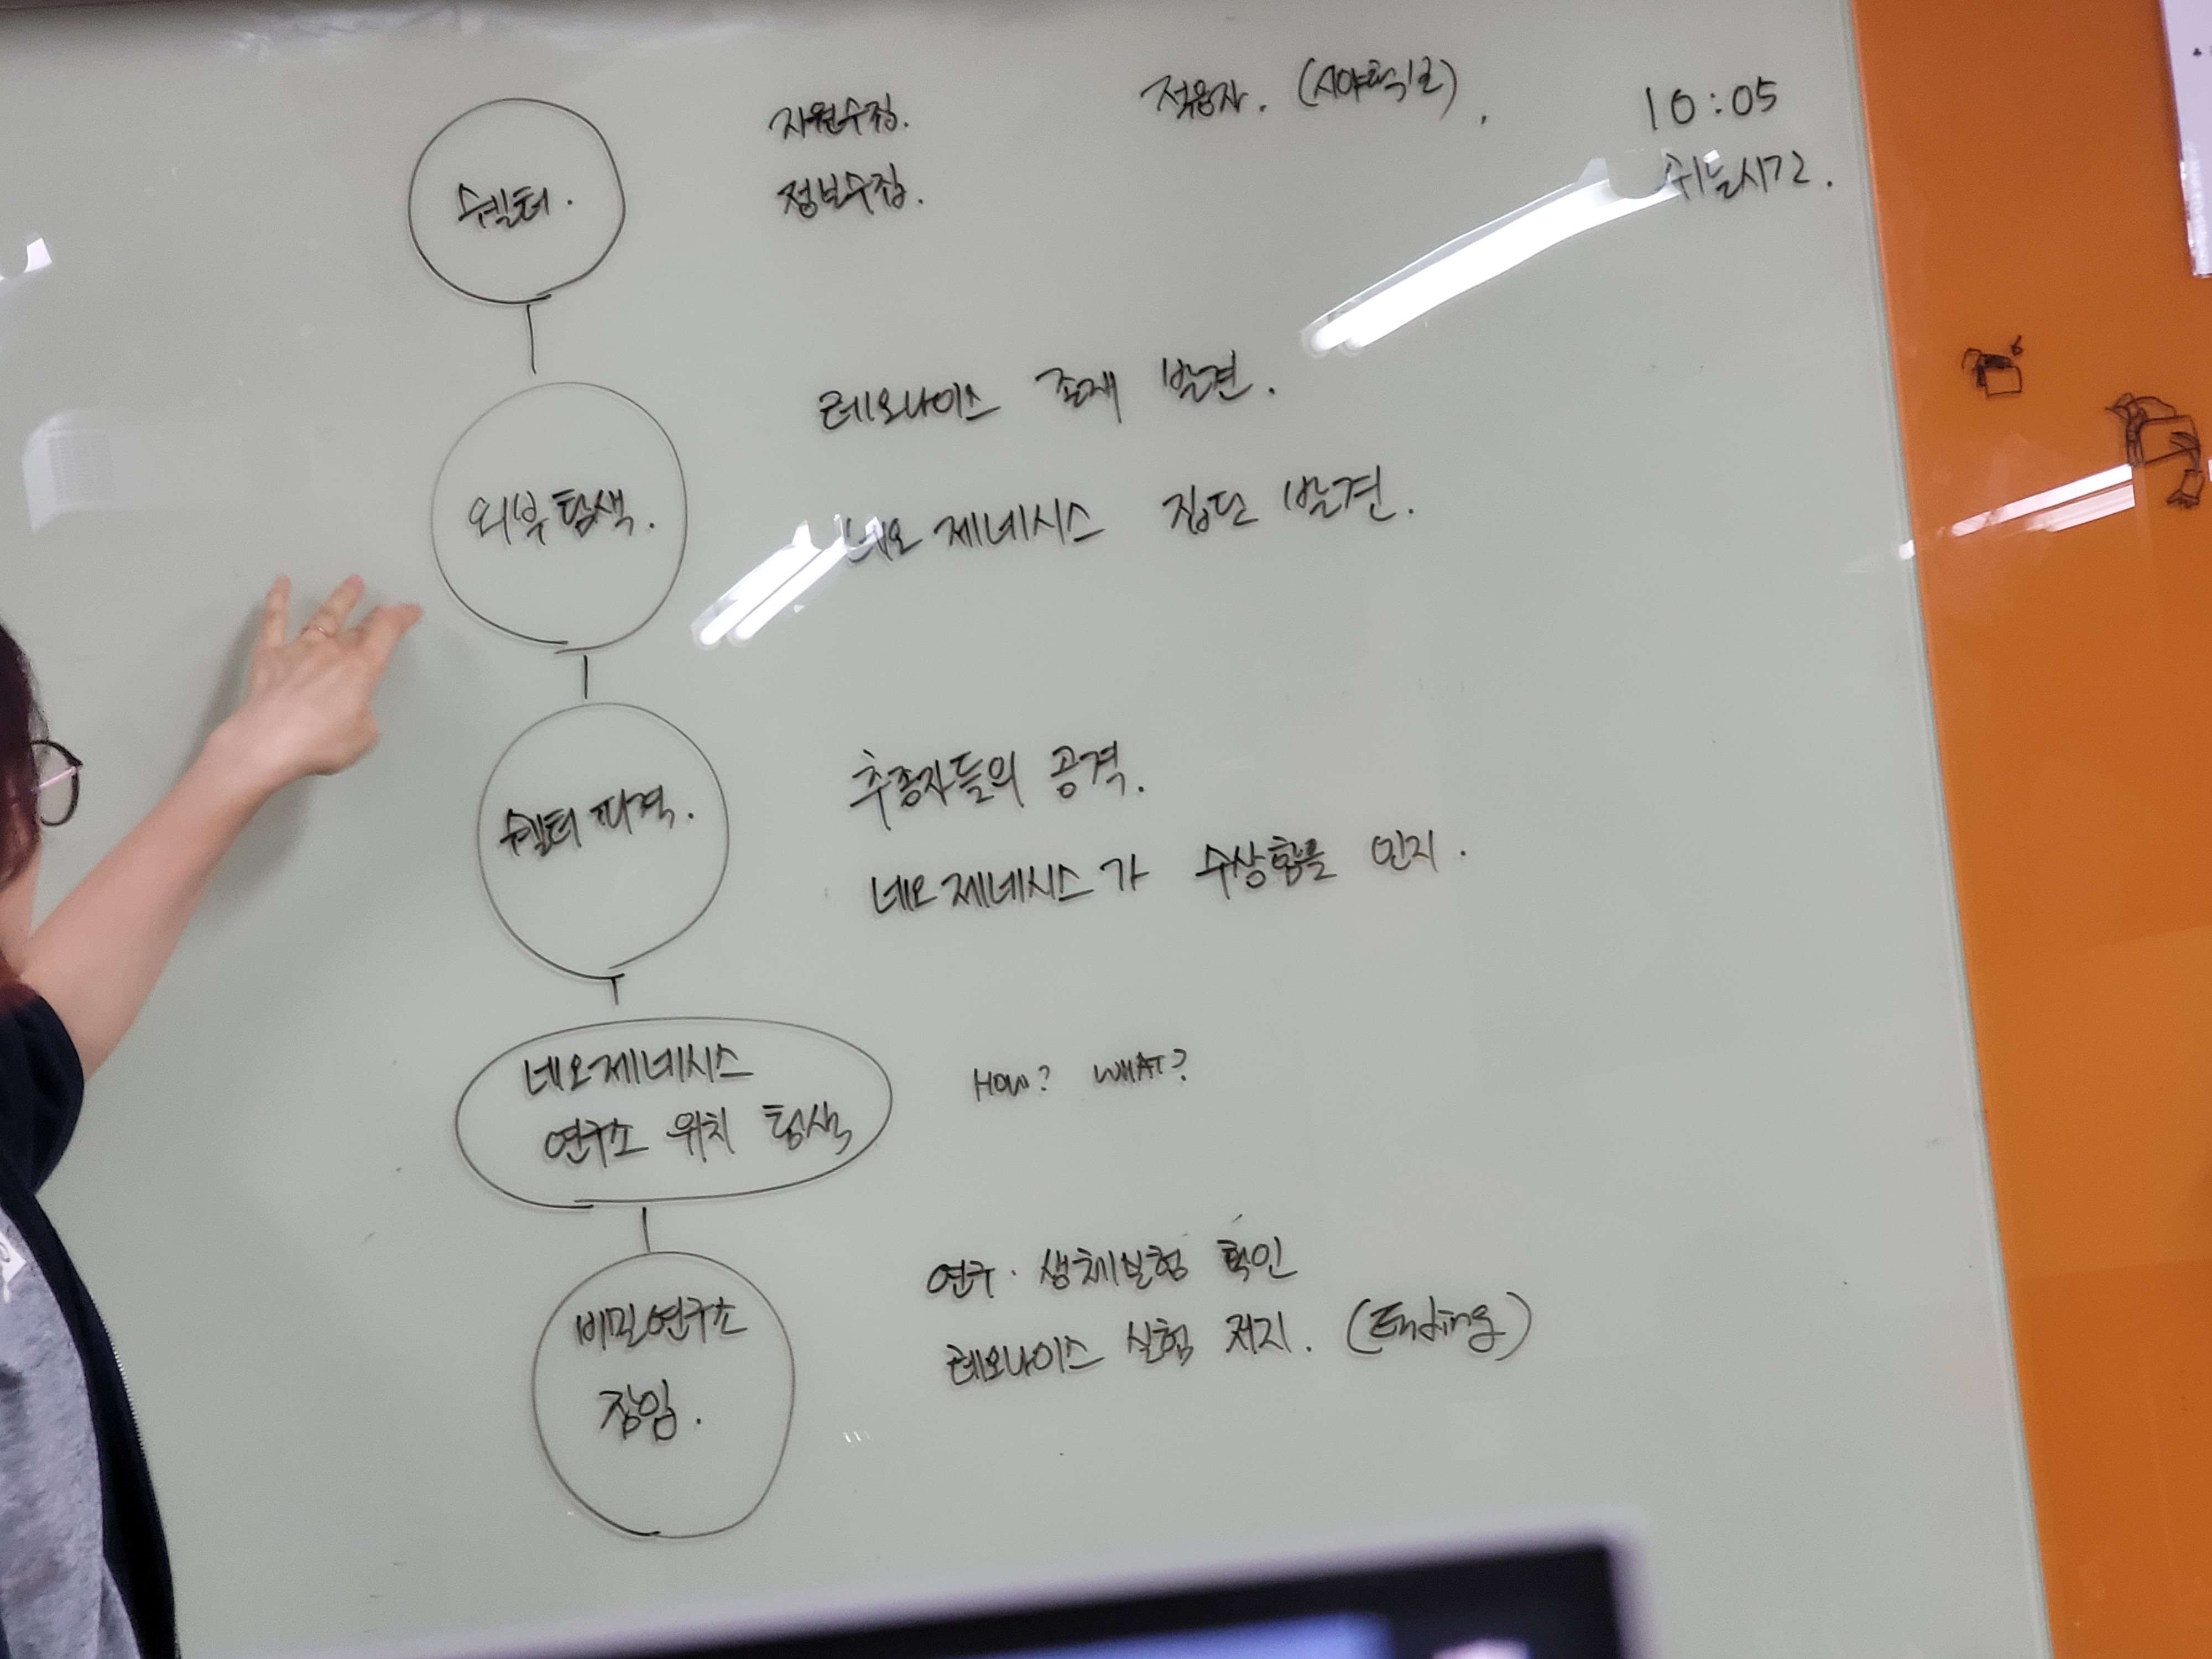 쉘터.
자원수집.
정보수집.
적응자. (시야확보)
10:05
쉬는시간.
외부탐색.
테오나이스 존재 발견.
네오 제네시스 집단 발견.
쉘터 파격.
추종자들의 공격.
네오제네시스가 수상함을 인지.
네오제네시스
연구소 위치 탐색
HOW? WHAT?
비밀연구소
잠입.
연구·생체실험 확인
테오나이스 실험 저지. (Ending)